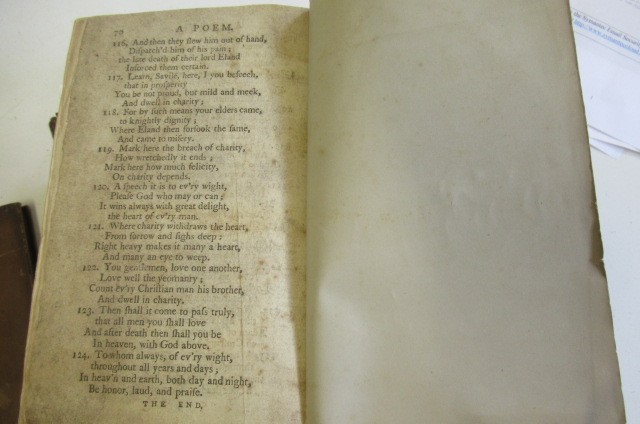 50 A POEM.
116. And then they slew him out of hand,
Dispatch'd him of his pain;
the late death of their lord Eland
Inforced them certain.
117. Learn, Savile, here, I you beseech,
that in prosperity
You be not proud, but mild and meek,
And dwell in charity;
118. For by such means your elders came,
to knightly dignity;
Where Eland then forsook the same,
And came to misery.
119. Mark here the breach of charity,
How wretchedly it ends;
Mark here how much felicity,
On charity depends.
120. A speech it is to ev'ry wight,
Please God who may or can;
It wins always with great delight,
the heart of ev'ry man.
121. Where charity withdraws the heart,
From sorrow and sighs deep;
Right heavy makes it many a heart,
And many an eye to weep.
122. You gentlemen, love one another,
Love well the yeomanry;
Count ev'ry Christian man his brother,
And dwell in charity.
123. Then shall it come to pass truly,
that all men you shall love
And after death then shall you be
In heaven, with God above.
124. To whom always, of ev'ry wight,
throughout all years and days;
In heav'n and earth, both day and night,
Be honor, laud, and praise.
THE END.